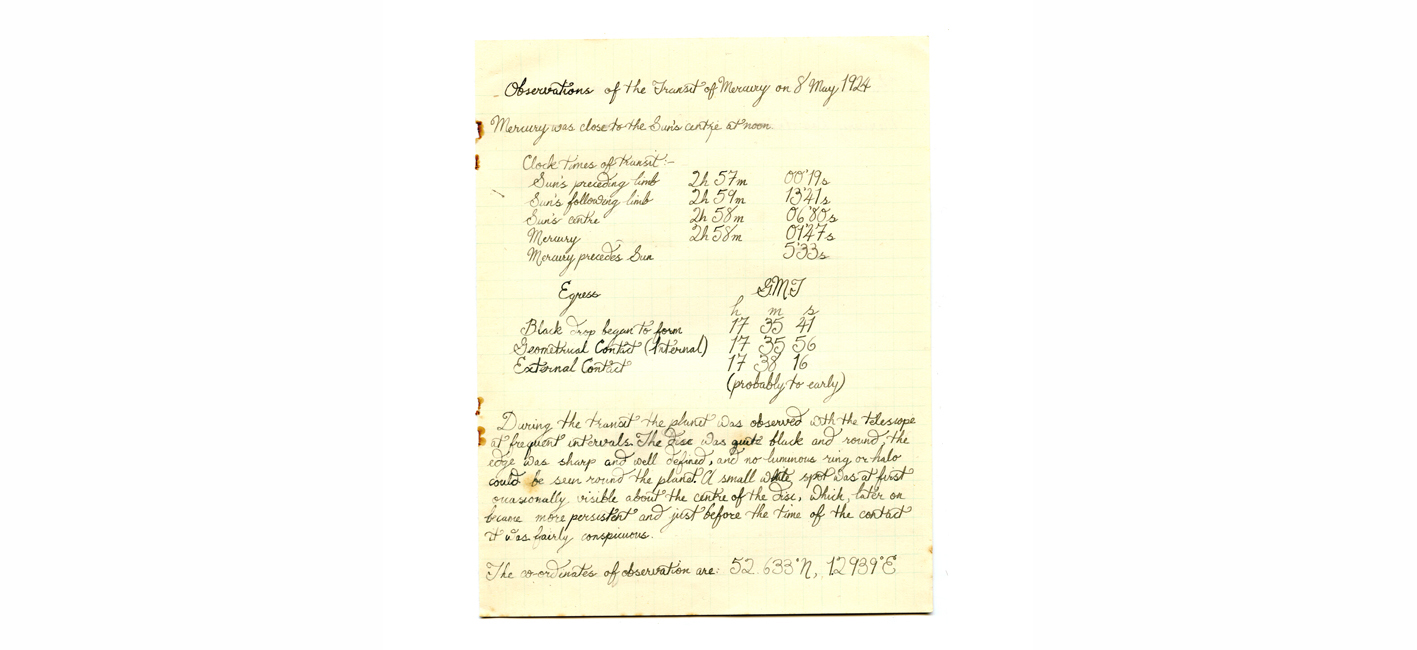 Observations of the Transit of Mercury on 8 May 1924
Mercury was close to the Sun's centre at noon.
Clock times of transit:-
Sun's preceding limb 2h 57m 00'19s
Sun's following limb 2h 59m 13'41s
Sun's centre 2h 58m 06'80s
Mercury 2h 58m 01'47s
Mercury precedes Sun 5'33s
Egress GMT
h m s
Black drop began to form 17 35 41
Geometrical Contact (Internal) 17 35 56
External Contact 17 38 16
(probably to early)
During the transit the planet was observed with the telescope
at frequent intervals. The disc was quite black and round, the
edge was sharp and well defined, and no luminous ring or halo
could be seen round the planet. A small white spot was at first
occasionally visible about the centre of the disc, which, later on
became more persistent and just before the time of the contact
it was fairly conspicuous.
The co-ordinates of observation are: 52.633°N, 12939°E